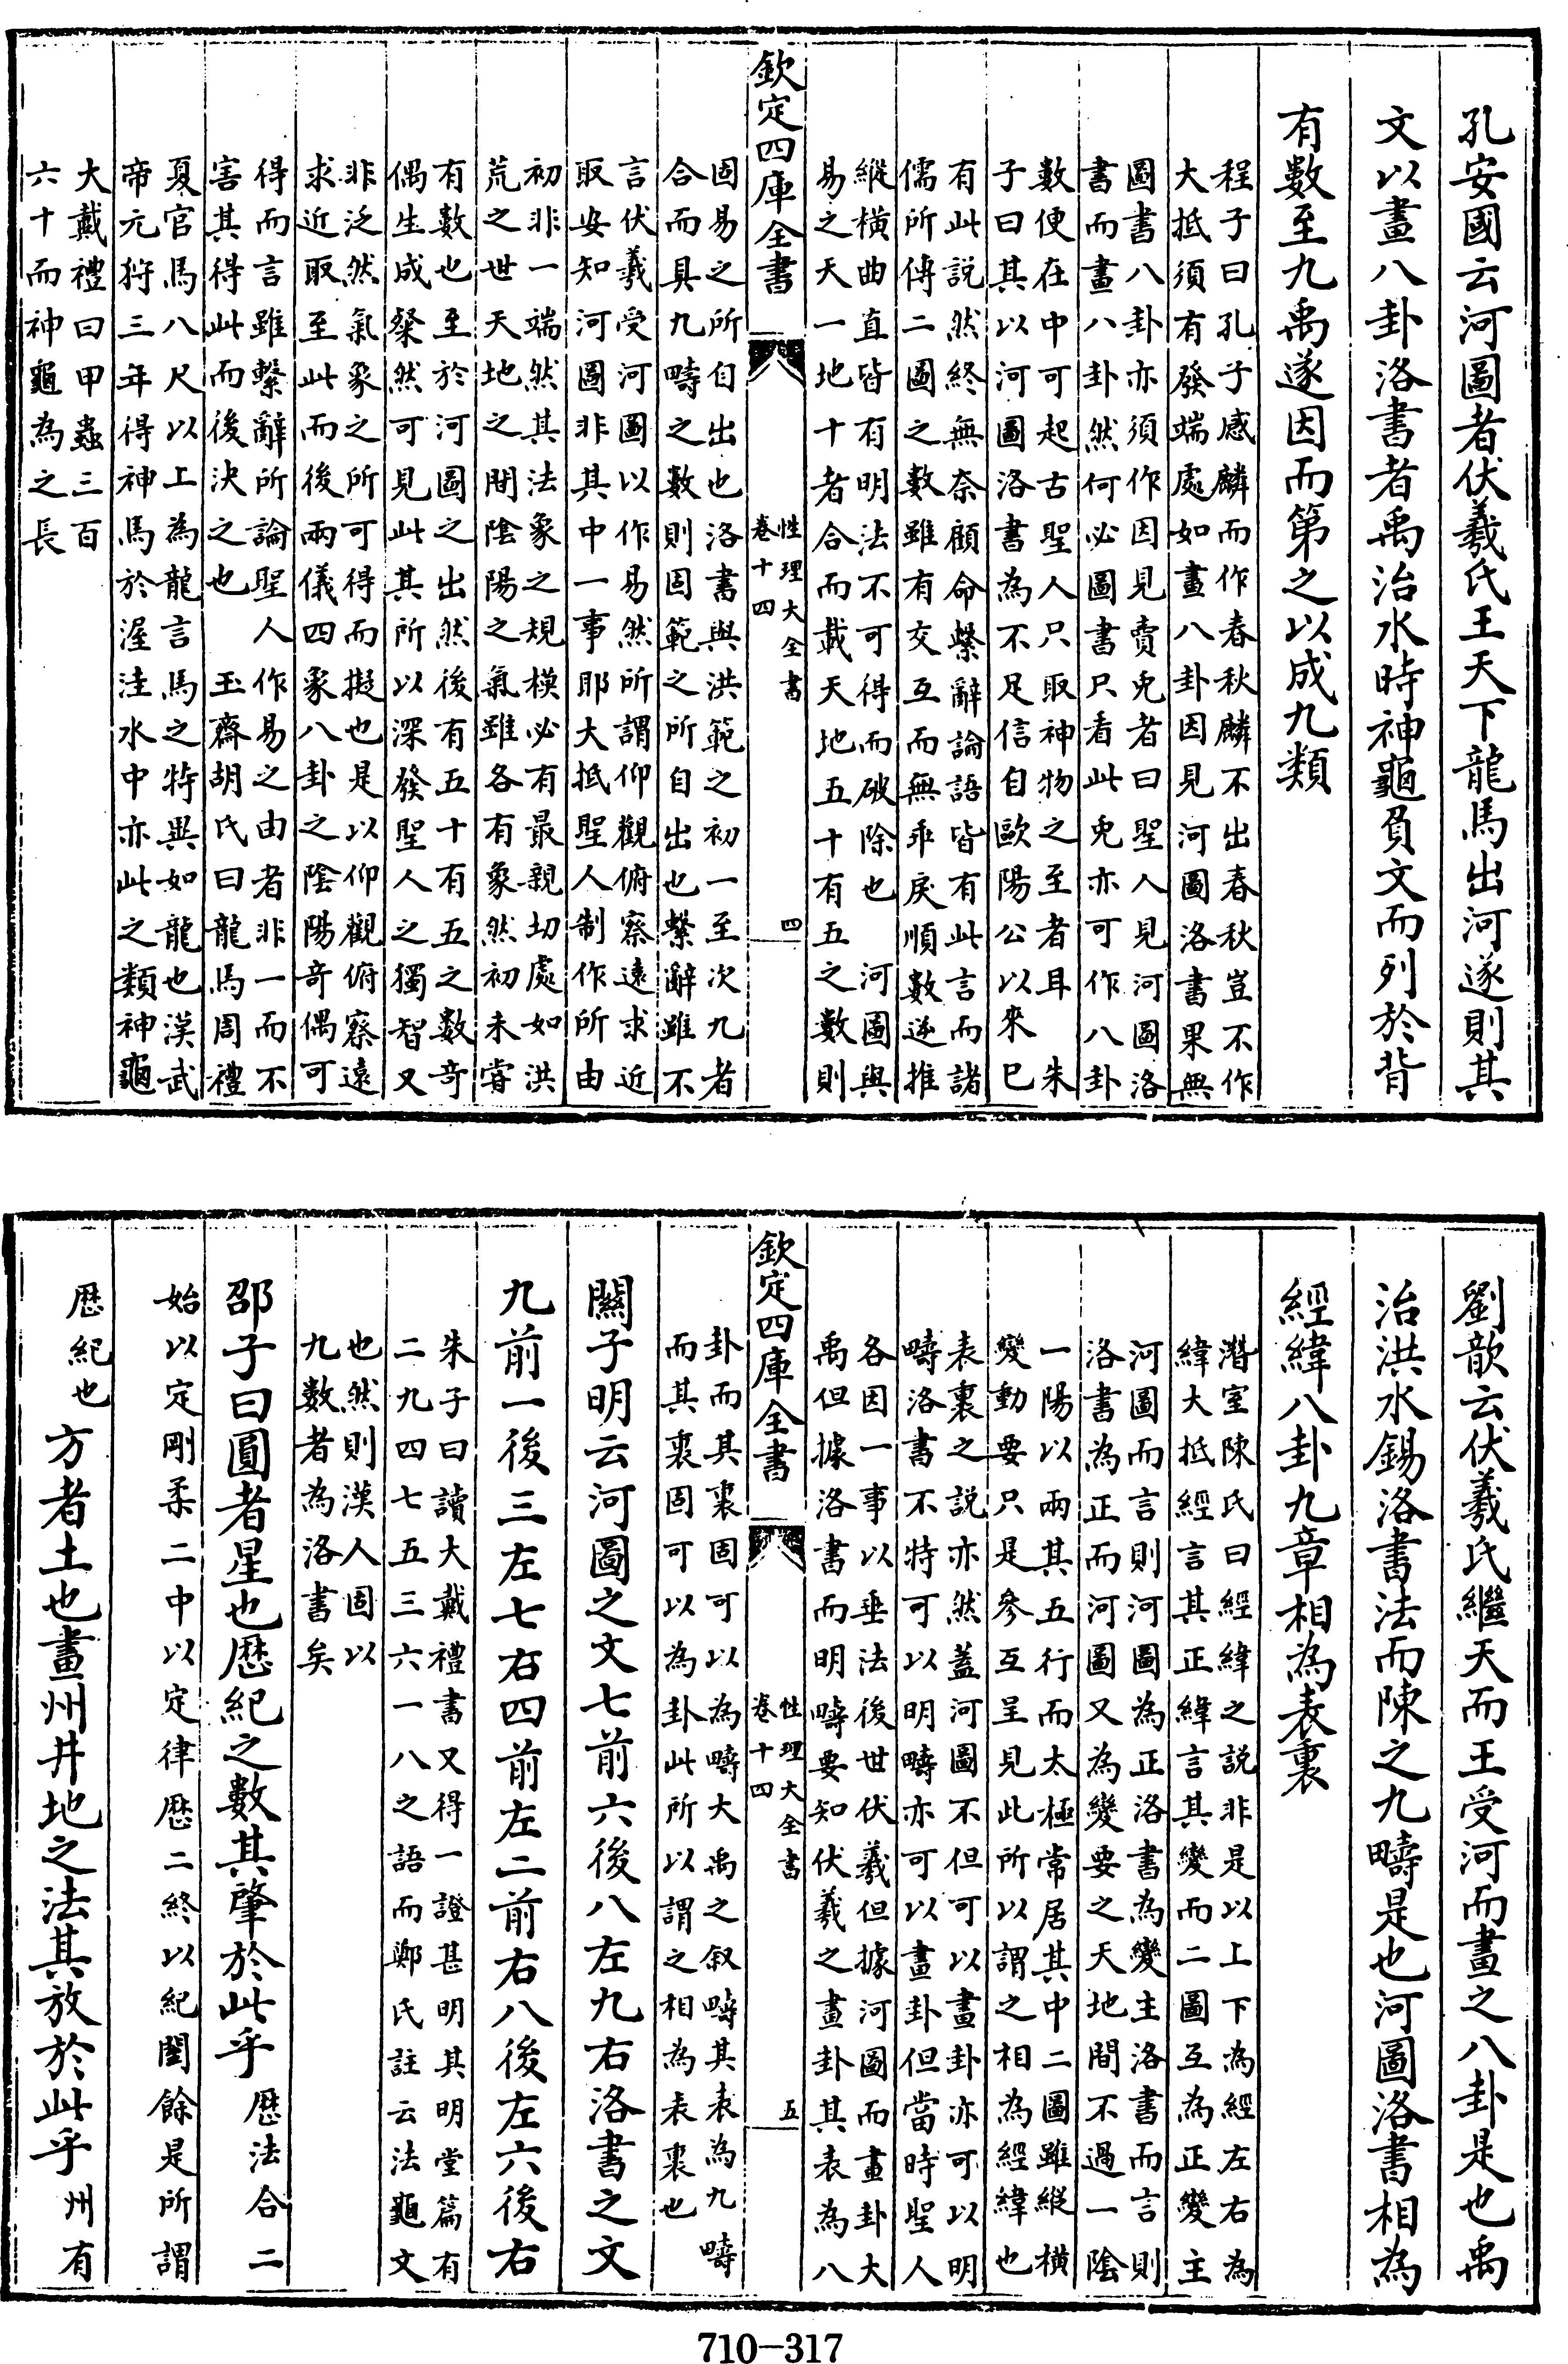 孔安國云河圖者伏羲氏王天下龍馬出河遂則其
文以畫八卦洛書者禹治水時神龜負文而列於背
有數至九禹遂因而第之以成九類
程子曰孔子感麟而作春秋麟不出春秋豈不作
大抵須有發端處如畫八卦因見河圖洛書果無
圖書八卦亦須作因見賣兎者曰聖人見河圖洛
書而畫八卦然何必圖書只看此兎亦可作八卦
數便在中可起古聖人只取神物之至者耳 朱
子曰其以河圖洛書為不足信自歐陽公以來已
有此説然終無奈顧命繫辭論語皆有此言而諸
儒所傳二圖之數雖有交互而無乖戾順數逆推
縱橫曲直皆有明法不可得而破除也 河圖與
易之天一地十者合而載天地五十有五之數則
欽定四庫全書
性理大全書
卷十四
四
固易之所自出也洛書與洪範之初一至次九者
合而具九疇之數則固範之所自出也繫辭雖不
言伏羲受河圖以作易然所謂仰觀俯察遠求近
取安知河圖非其中一事耶大抵聖人制作所由
初非一端然其法象之規模必有最親切處如洪
荒之世天地之間陰陽之氣雖各有象然初未甞
有數也至於河圖之出然後有五十有五之數竒
偶生成粲然可見此其所以深發聖人之獨智又
非泛然氣象之所可得而擬也是以仰觀俯察遠
求近取至此而後兩儀四象八卦之陰陽竒偶可
得而言雖繫辭所論聖人作易之由者非一而不
害其得此而後決之也 玉齋胡氏曰龍馬周禮
夏官馬八尺以上為龍言馬之特異如龍也漢武
帝元狩三年得神馬於渥洼水中亦此之類神龜
大戴禮曰甲蟲三百
六十而神龜為之長
劉歆云伏羲氏繼天而王受河而畫之八卦是也禹
治洪水錫洛書法而陳之九疇是也河圖洛書相為
經緯八卦九章相為表裏
潛室陳氏曰經緯之説非是以上下為經左右為
緯大抵經言其正緯言其變而二圖互為正變主
河圖而言則河圖為正洛書為變主洛書而言則
洛書為正而河圖又為變要之天地間不過一陰
一陽以兩其五行而太極常居其中二圖雖縱橫
變動要只是參互呈見此所以謂之相為經緯也
表裏之説亦然蓋河圖不但可以畫卦亦可以明
疇洛書不特可以明疇亦可以畫卦但當時聖人
各因一事以垂法後世伏羲但據河圖而畫卦大
禹但據洛書而明疇要知伏羲之畫卦其表為八
欽定四庫全書
性理大全書
卷十四
五
卦而其裏固可以為疇大禹之叙疇其表為九疇
而其裏固可以為卦此所以謂之相為表裏也
關子明云河圖之文七前六後八左九右洛書之文
九前一後三左七右四前左二前右八後左六後右
朱子曰讀大戴禮書又得一證甚明其明堂篇有
二九四七五三六一八之語而鄭氏註云法龜文
也然則漢人固以
九數者為洛書矣
邵子曰圓者星也厯紀之數其肇於此乎 厯法合二
始以定剛柔二中以定律厯二終以紀閏餘是所謂
厯紀也 方者土也畫州井地之法其放於此乎 州有
710-317